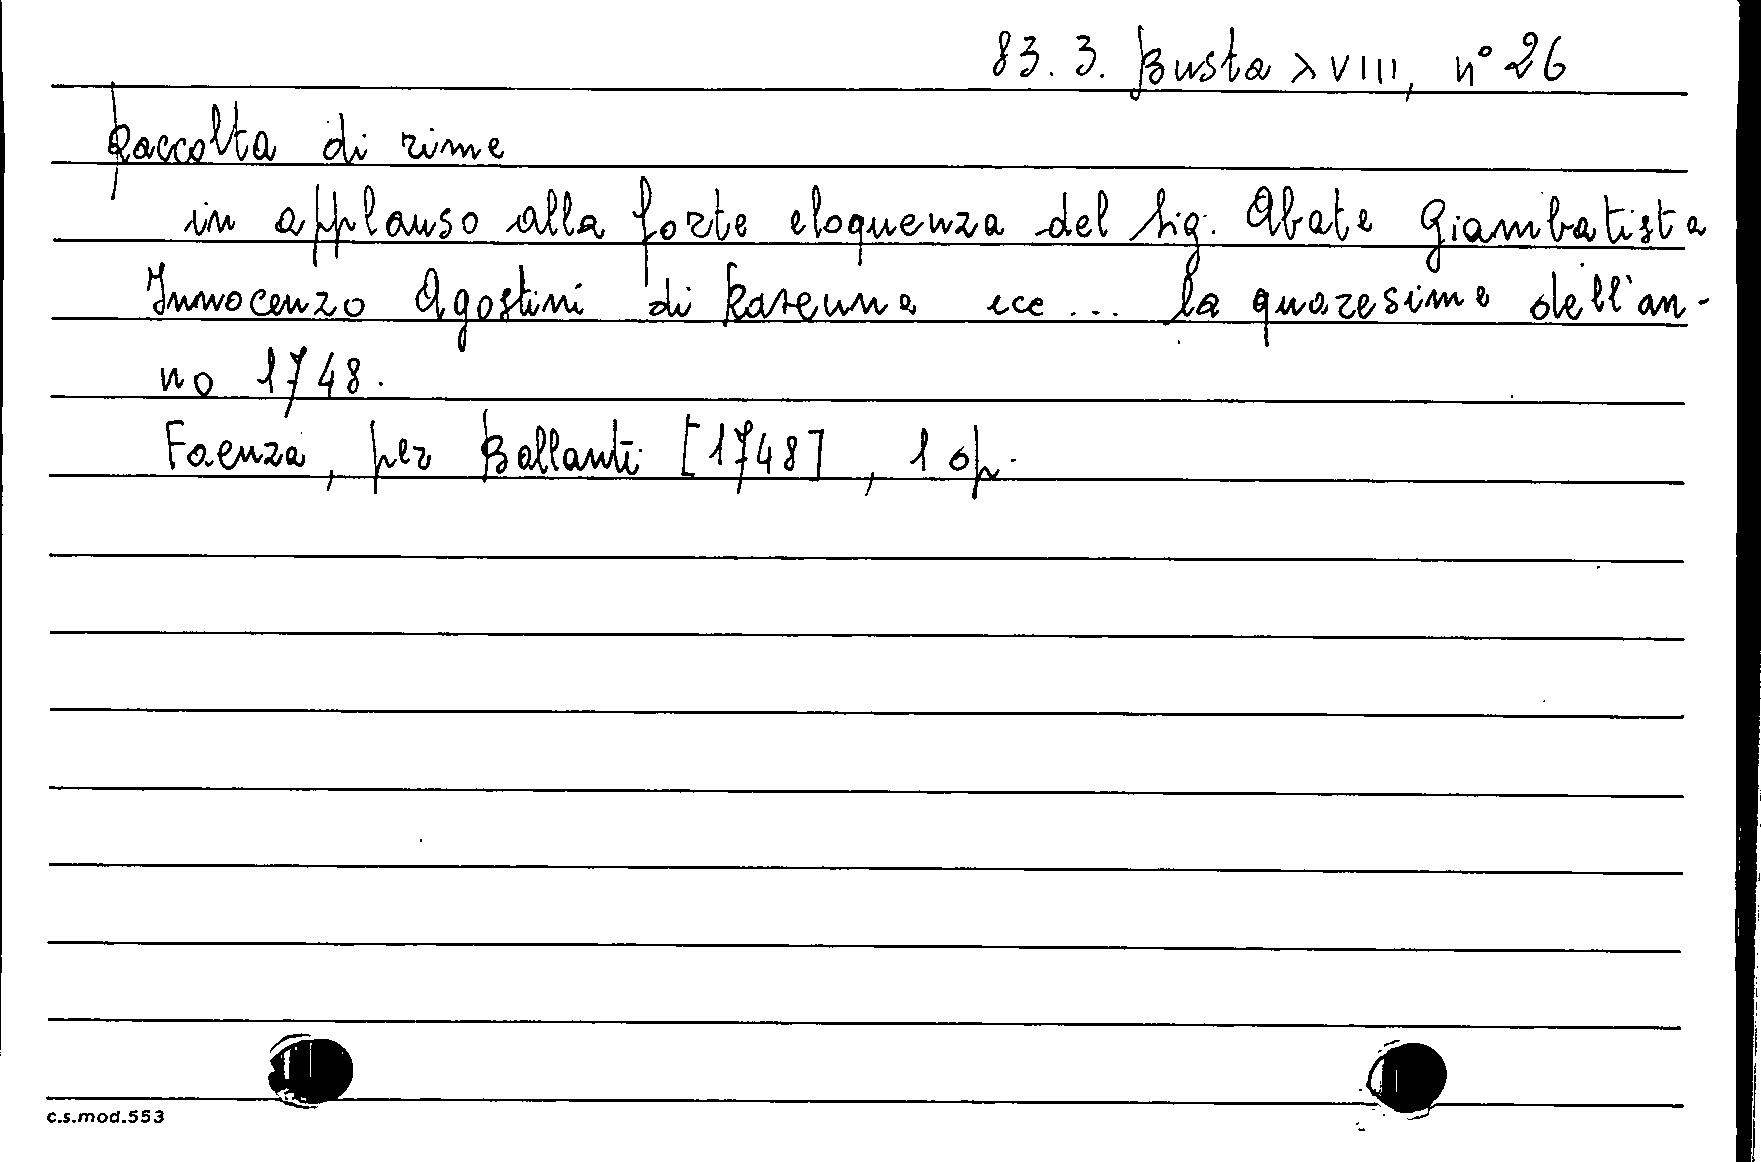 83.3. Busta XVIII, n° 26
Raccolta di rime
in applauso alla forte eloquenza del Sig. Abate Giambatista
Innocenzo Agostini di Ravenna ecc ... la quaresima dell'an-
no 1748.
Faenza, per Ballanti [1748], 1 op.
c.s.mod.553